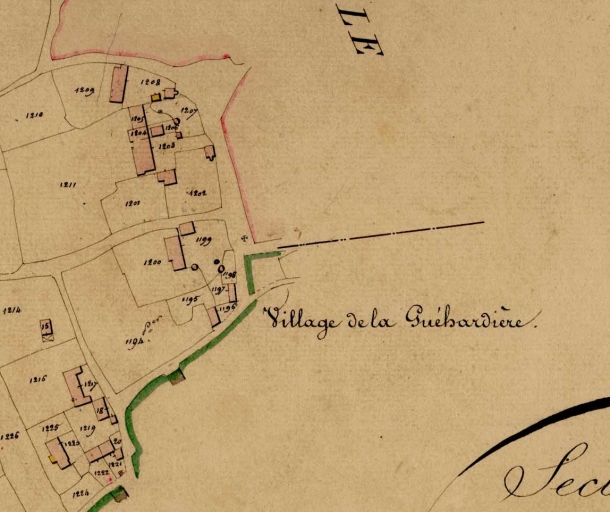 LE
1208
1209
1207
1210
1205
1206
1204
1203
1211
1202
1201
1199
1200
1198
1197
1195
1196
1214
Village de la Guéhardière.
15
1194
1216
1217
18
1225
1219
1226
1223
20
1221
1222
1224
Secti